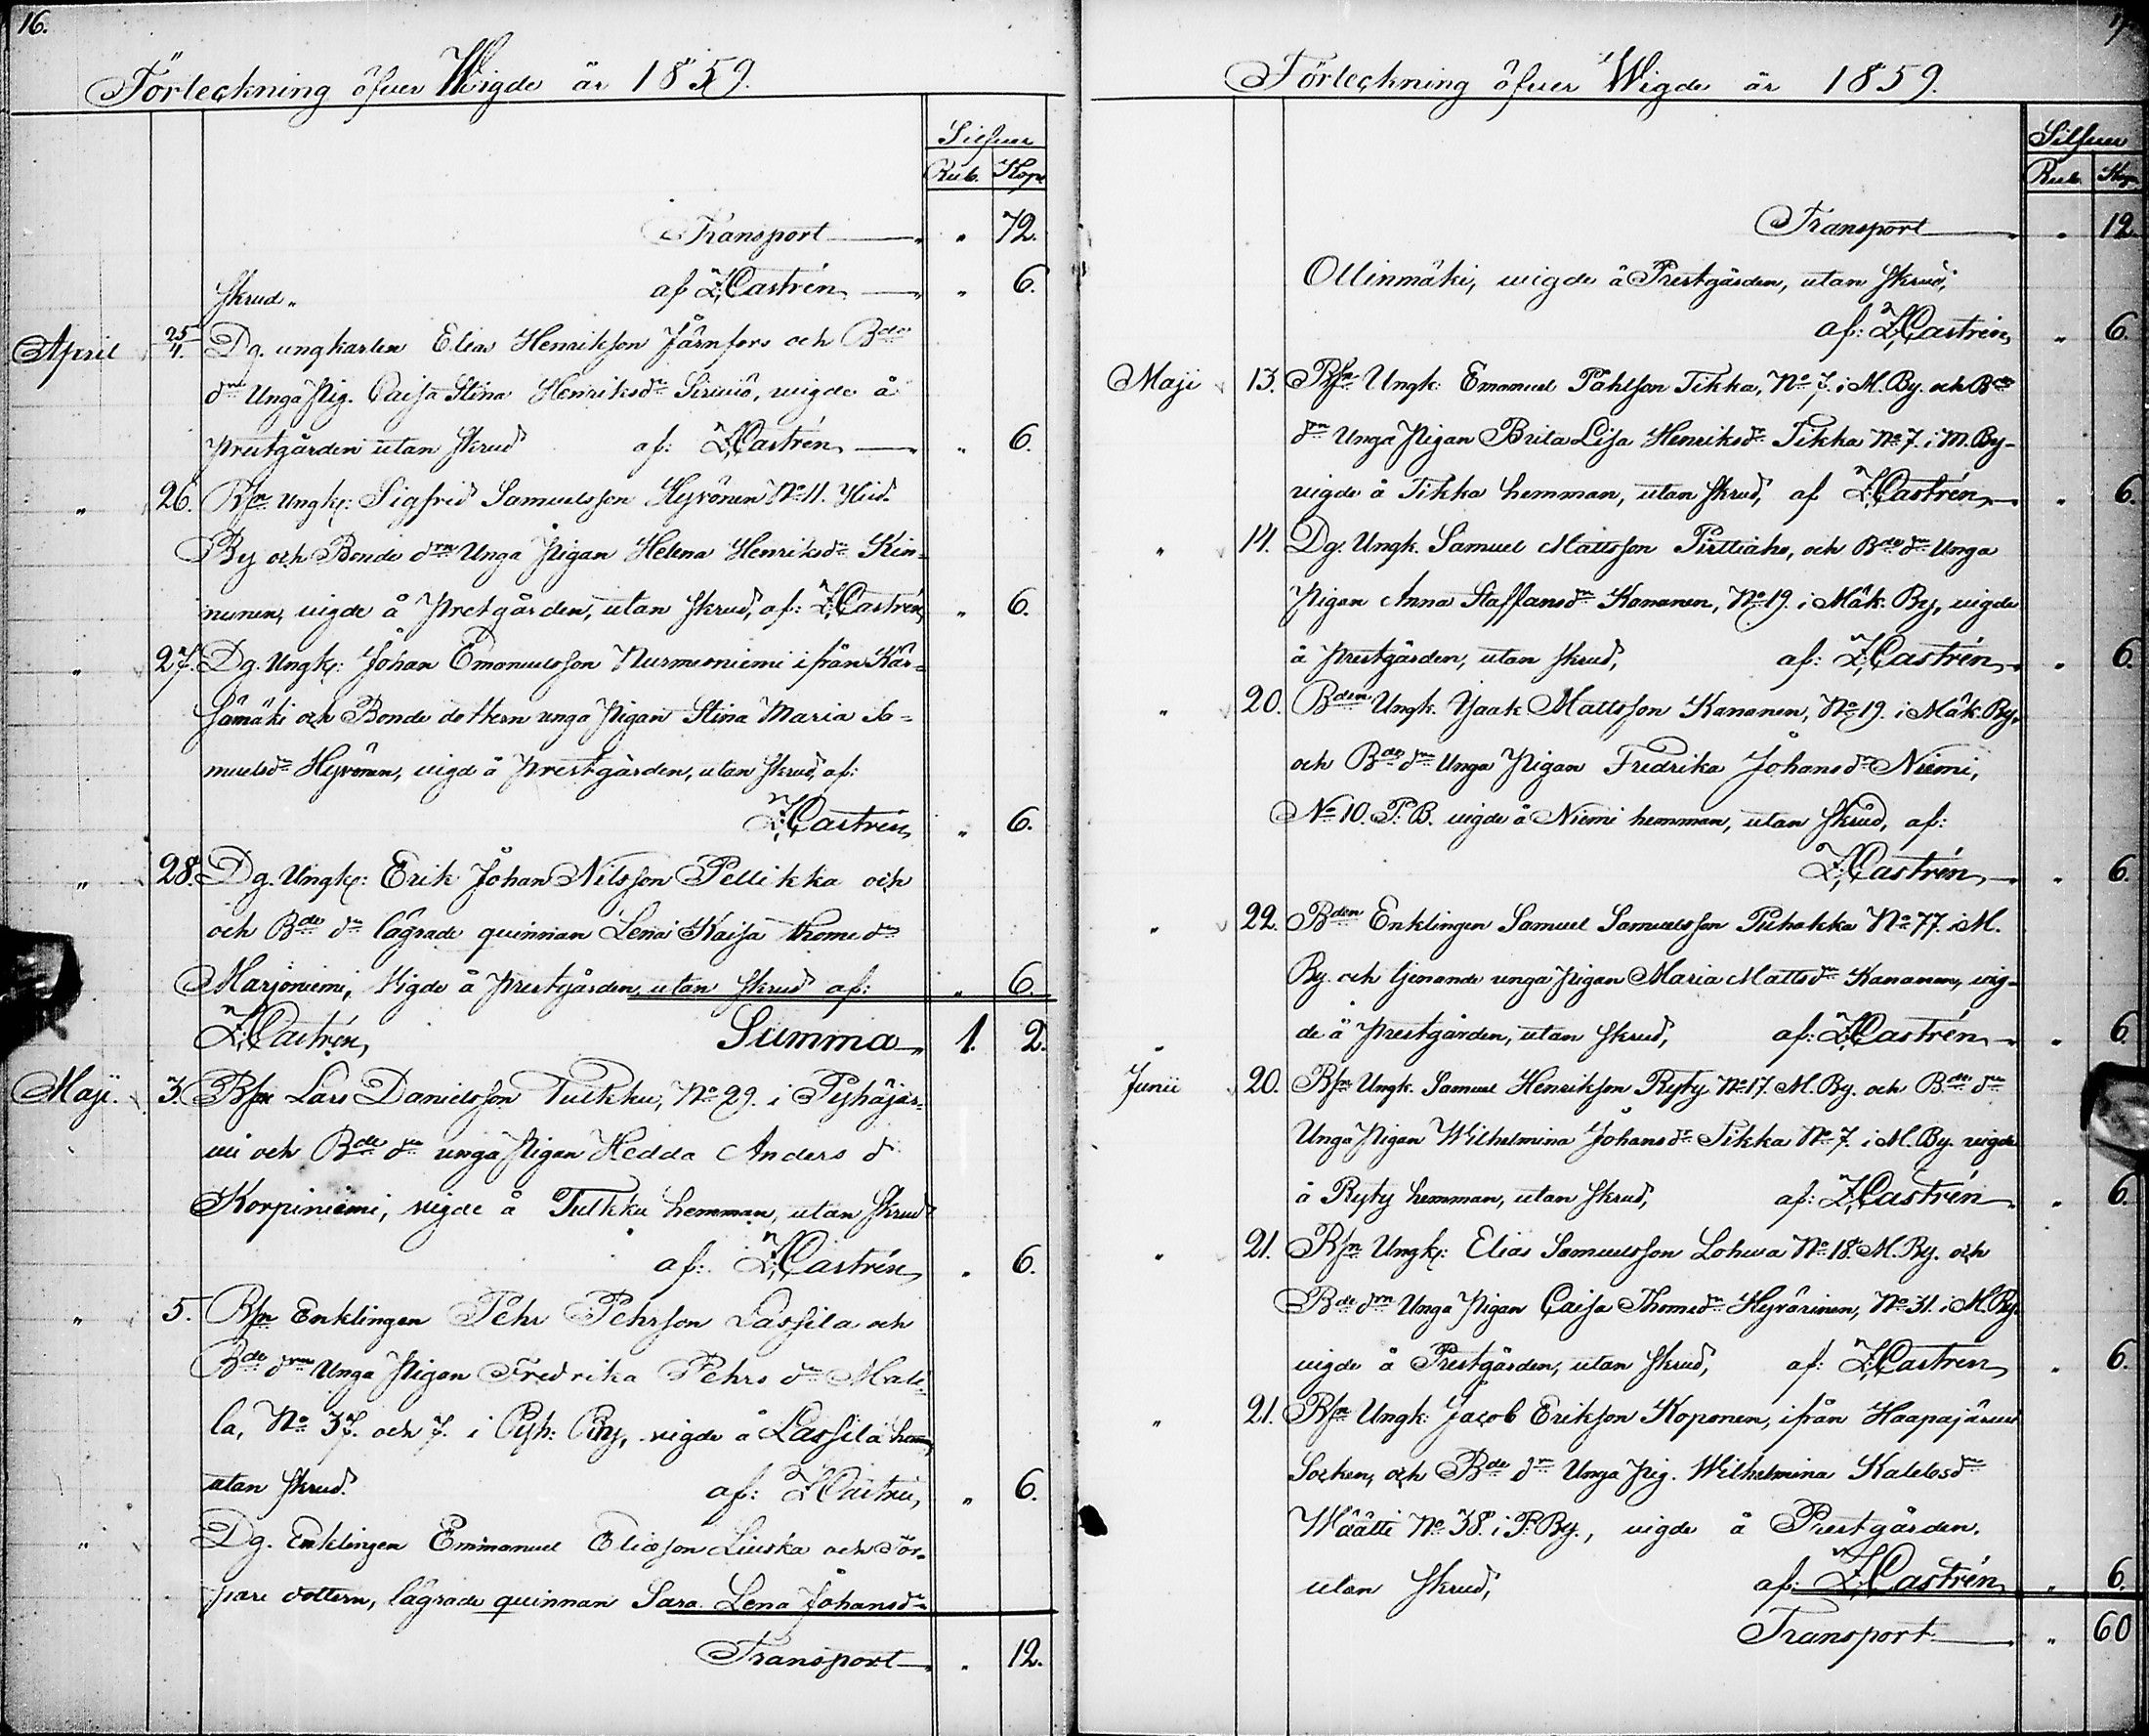 16.
Förteckning öfver Wigde år 1859.
Silfver
Rub. Kop.
Transport " 72.
Skrud. af Z. Castrén " 6.
April 25/4. Dg. ungkarlen Elias Henrikson Järnfors och Bde
dn Unga Pig. Caisa Stina Henriksdr Sirviö, vigde å
prestgården utan Skrud af: Z. Castrén " 6.
" 26. Bsn Ungk: Sigfrid Samuelsson Hyvönen No 11.
By och Bonde drn Unga Pigan Helena Henriksdr Kin-
nunen, vigde å Pretgården, utan Skrud, af: Z. Castrén, " 6.
" 27. Dg. Ungk: Johan Emanuelsson Nurmesniemi ifrån Kär-
sämäki och Bonde dottern unga Pigan Stina Maria Sa-
muelsdr Hyvönen, vigd å prestgården, utan Skrud, af:
Z. Castrén, " 6.
" 28. Dg. Ungk: Erik Johan Nilsson Pellikka och
och Bde dn lägrade quinnan Lena Kaisa Thomedr
Marjoniemi, Vigde å Prestgården, utan Skrud af: " 6.
Z. Castrén, Summa 1. 2.
Maji. 3. Bsn Lars Danielsson Tulkku, No 29. i Pyhäjär-
vi och Bde dn unga Pigan Hedda Anders d
Korpiniemi, vigde å Tulkku hemman, utan Skrud
af: Z. Castrén " 6.
" 5. Bsn Enklingen Pehr Pehrson Lassila och
Bde drn Unga Pigan Fredrika Pehrs dr Mali-
la, No 37. och 7. i Pyh: By, vigde å Lassila hem,
utan Skrud. af: Z. Castrén, " 6.
" Dg. Enklingen Emmanuel Eliasson Liuska och Tor-
pare dottern, lägrade quinnan Sara Lena Johansdr
Transport " 12.
17
Förteckning öfver Wigde år 1859.
Silfver
Rub. Kop.
Transport " 12.
Ollinmäki, vigde å Prestgården, utan Skrud,
af: Z. Castrén, " 6.
Maji 13. Bsn Ungk: Emanuel Påhlson Tikka, No 7. i M. By. och Bde
drn Unga Pigan Brita Lisa Henriksdr Tikka No 7. i M. By-
vigde å Tikka hemman, utan Skrud, af Z. Castrén, " 6.
" 14. Dg. Ungk. Samuel Mattsson Pirttiaho, och Bde dn Unga
Pigan Anna Staffansdr Kananen, No 19. i Mäk. By, vigde
å prestgården, utan Skrud, af: Z. Castrén, " 6.
" 20. Bden Ungk. Isaak Mattsson Kananen, No 19. i Mäk. By,
och Bde dn Unga Pigan Fredrika Johansdr Niemi,
No 10. P. B. vigde å Niemi hemman, utan Skrud, af:
Z. Castrén, " 6.
" 22. Bden Enklingen Samuel Samuelsson Puhakka No 77. i M.
By. och tjenande unga Pigan Maria Mattsdr Kananen, vig-
de å Prestgården, utan Skrud, af: Z. Castrén " 6.
Junii 20. Bsn Ungk. Samuel Henrikson Ryty No 17. M. By. och Bde dn
Unga Pigan Wilhelmina Johansdr Tikka No 7. i M. By. vigde
å Ryty hemman, utan Skrud, af: Z. Castrén " 6.
" 21. Bsn Ungk: Elias Samuelsson Lohwa No 18. M. By. och
Bde drn Unga Pigan Caisa Thomedr Hyvärinen, No 31. i M. By.
vigde å Prestgården, utan Skrud, af: Z. Castren, " 6.
" 21. Bsn Ungk: Jacob Erikson Koponen, ifrån Haapajärvi
Socken, och Bde dn Unga Pig. Wilhelmina Kalebsdr
Määtti No 38. i P. By., vigde å Prestgården,
utan Skrud, af: Z. Castrén, " 6.
Transport " 60